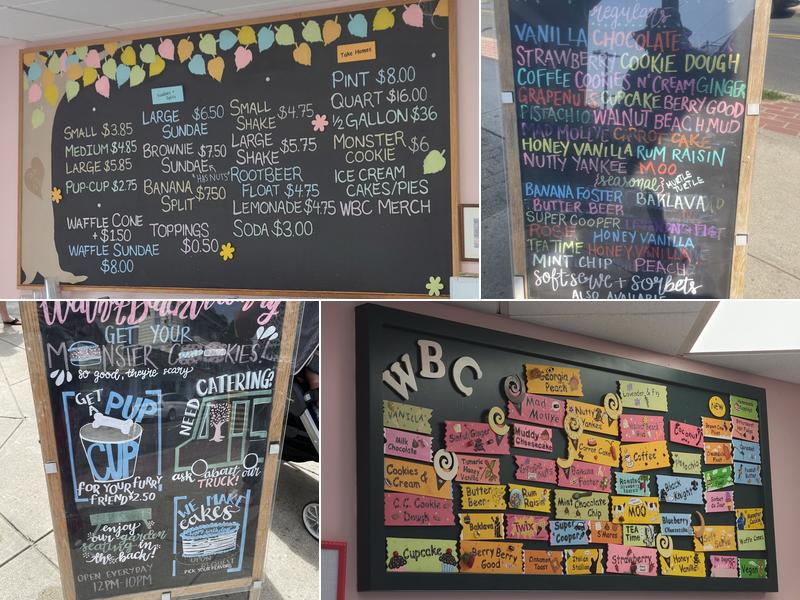 Take Homes
SMALL $3.85
MEDIUM $4.85
LARGE $5.85
PUP-CUP $2.75
WAFFLE CONE
+$1.50
WAFFLE SUNDAE
$8.00
LARGE $6.50
SUNDAE
BROWNIE $7.50
SUNDAE
"HAS NUTS"
BANANA $7.50
SPLIT
TOPPINGS
$0.50
SMALL
SHAKE $4.75
LARGE
SHAKE $5.75
ROOTBEER
FLOAT $4.75
LEMONADE $4.75
SODA $3.00
PINT $8.00
QUART $16.00
½ GALLON $36
MONSTER
COOKIE $6
ICE CREAM
CAKES/PIES
WBC MERCH
regulars
VANILLA CHOCOLATE
STRAWBERRY COOKIE DOUGH
COFFEE COOKIES N' CREAM GINGER
GRAPENUTS CUPCAKE BERRY GOOD
PISTACHIO WALNUT BEACH MUD
MAD MOLLYE CARROT CAKE
HONEY VANILLA RUM RAISIN
NUTTY YANKEE MOO
seasonal MYRTLE
TURTLE
BANANA FOSTER BAKLAVA
BUTTER BEER
SUPER COOPER
ROSE HONEY VANILLA
TEA TIME HONEY VANILLA
MINT CHIP PEACH
soft-serve + sorbets
ALSO AVAILABLE
GET YOUR
MONSTER COOKIES!
so good, they're scary
GET
A PUP
CUP
FOR YOUR FURRY
FRIEND $2.50
NEED CATERING?
ask about our
TRUCK!
enjoy
our garden
seating in
the back!
OPEN EVERYDAY
12PM-10PM
WE MAKE
cakes
PICK YOUR FLAVOR
WBC
Georgia
Peach
Lavender & Fig
NEW
Vanilla
Mad
Mollye
Nutty
Yankee
Milk
Chocolate
Sinful Ginger
Muddy
Cheesecake
Carrot Cake
Coconut
Cookies &
Cream
Turmeric
Honey
Vanilla
Coffee
Pistachio
Banana
Foster
C.C. Cookie
Dough
Butter
Beer
Rum
Raisin
Mint Chocolate
Chip
MOO
Black
Knight
Baklava
Twix
Super
Cooper
S'Mores
TEA
Time
Blueberry
Cheesecake
Cupcake
Berry Berry
Good
Cinnamon
Toast
Italian
Stallion
Strawberry
Honey
Vanilla
Soft Serve
Waffle Cones
Vegan